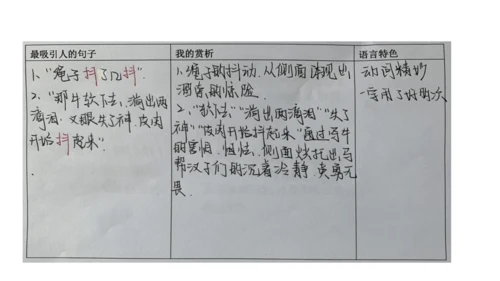 最吸引人的句子
我的赏析
语言特色
1、“绳子抖了口抖”.
2、“那牛软下去、淌出两
滴泪、又眼失了神、皮肉
开始抖起来”
1、绳子的抖动,从侧面体现出
溜索的惊险
2、“软下去”“淌出两滴泪”“失了
神”“皮肉开始抖起来”通过写牛
的害怕、侧面烘托出马
帮汉子们的沉着冷静、英勇无
畏.
动词精妙